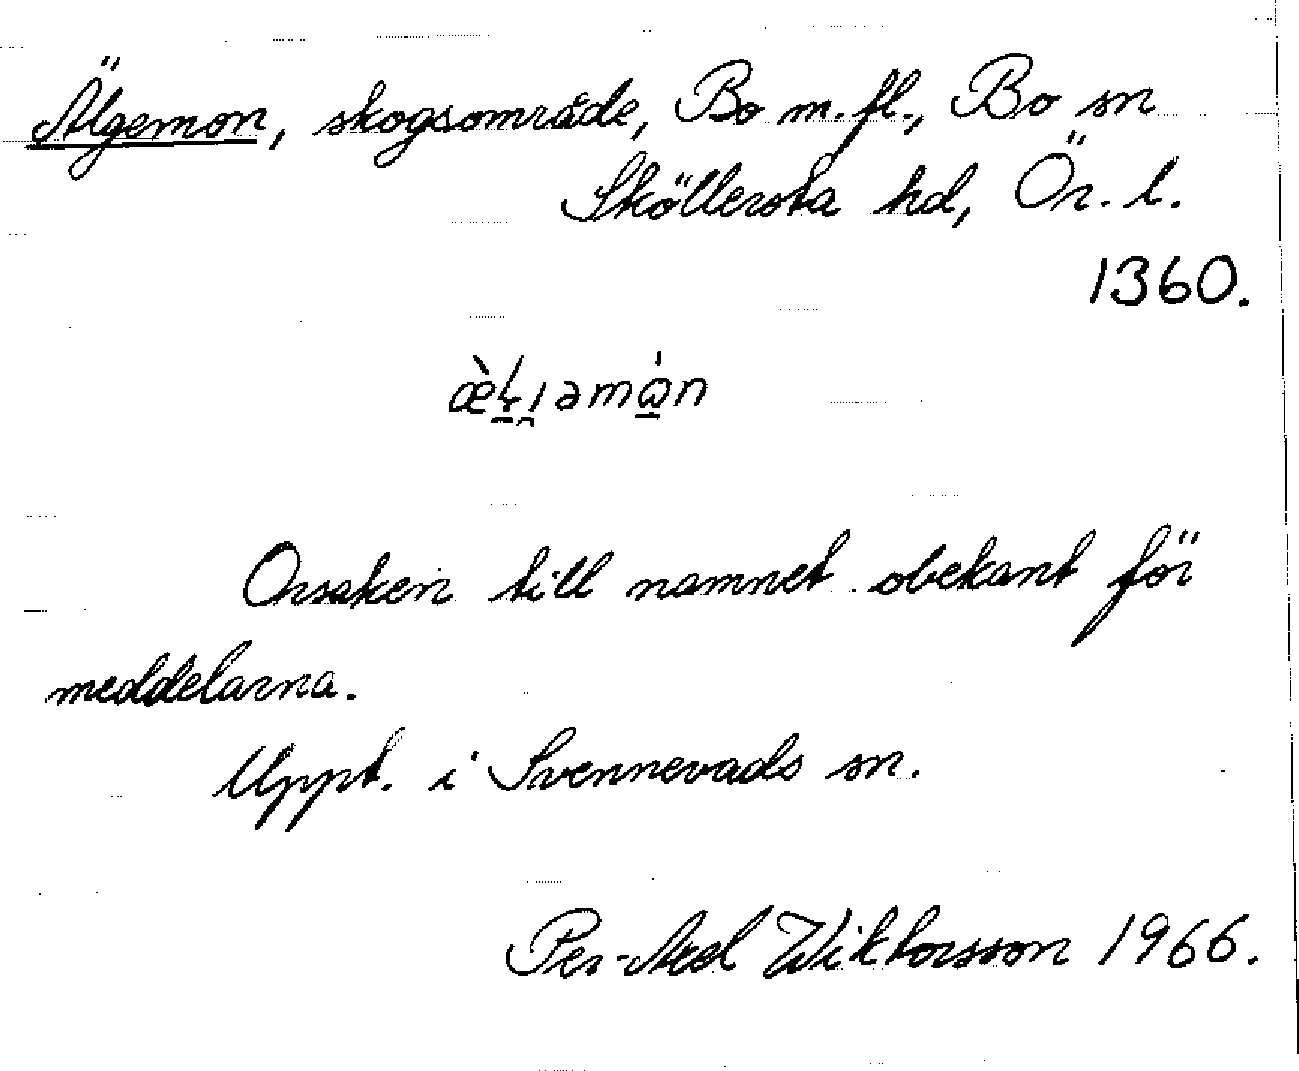 Älgemon, skogsområde, Bo m.fl., Bo sn
Sköllersta hd, Ör. l.
1360.
Orsaken till namnet obekant för
meddelarna.
Uppt. i Svennevads sn.
Per-Axel Wiktorsson 1966.